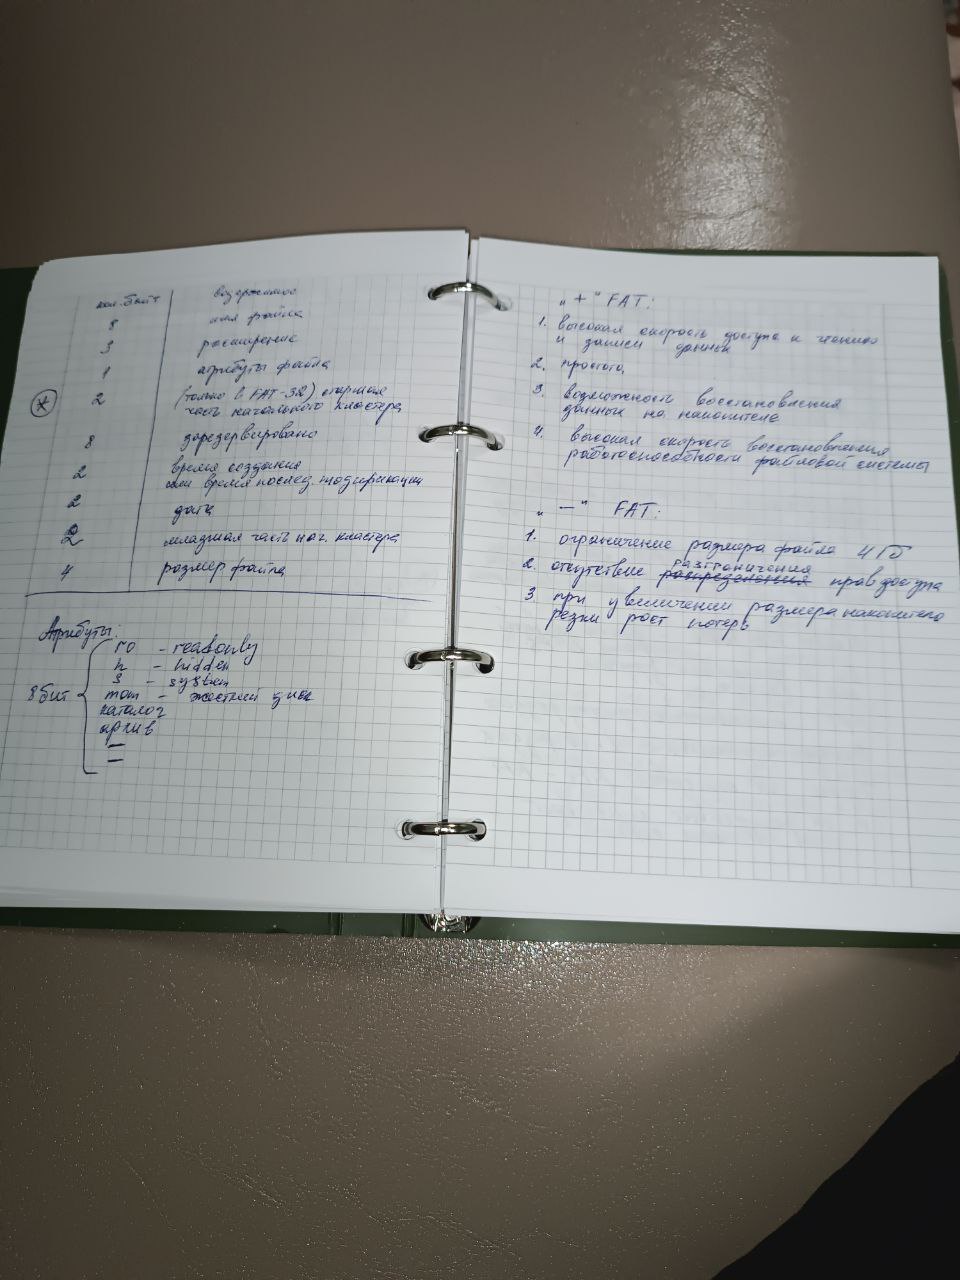 кол. байт содержимое
8 имя файла
3 расширение
1 атрибуты файла
* 2 (только в FAT-32) старшая
часть начального кластера
8 зарезервировано
2 время создания
или время послед. модификации
2 дата
2 младшая часть нач. кластера
4 размер файла
Атрибуты:
8 бит
ro - readonly
h - hidden
s - system
том - жесткий диск
каталог
архив
—
—
„+" FAT:
1. высокая скорость доступа к чтению
и записи данных
2. простота
3. возможность восстановления
данных на накопителе
4. высокая скорость восстановления
работоспособности файловой системы
„—" FAT:
1. ограничение размера файла 4Гб
разграничения
2. отсутствие распределения прав доступа
3. при увеличении размера накопителя
резки рост потерь